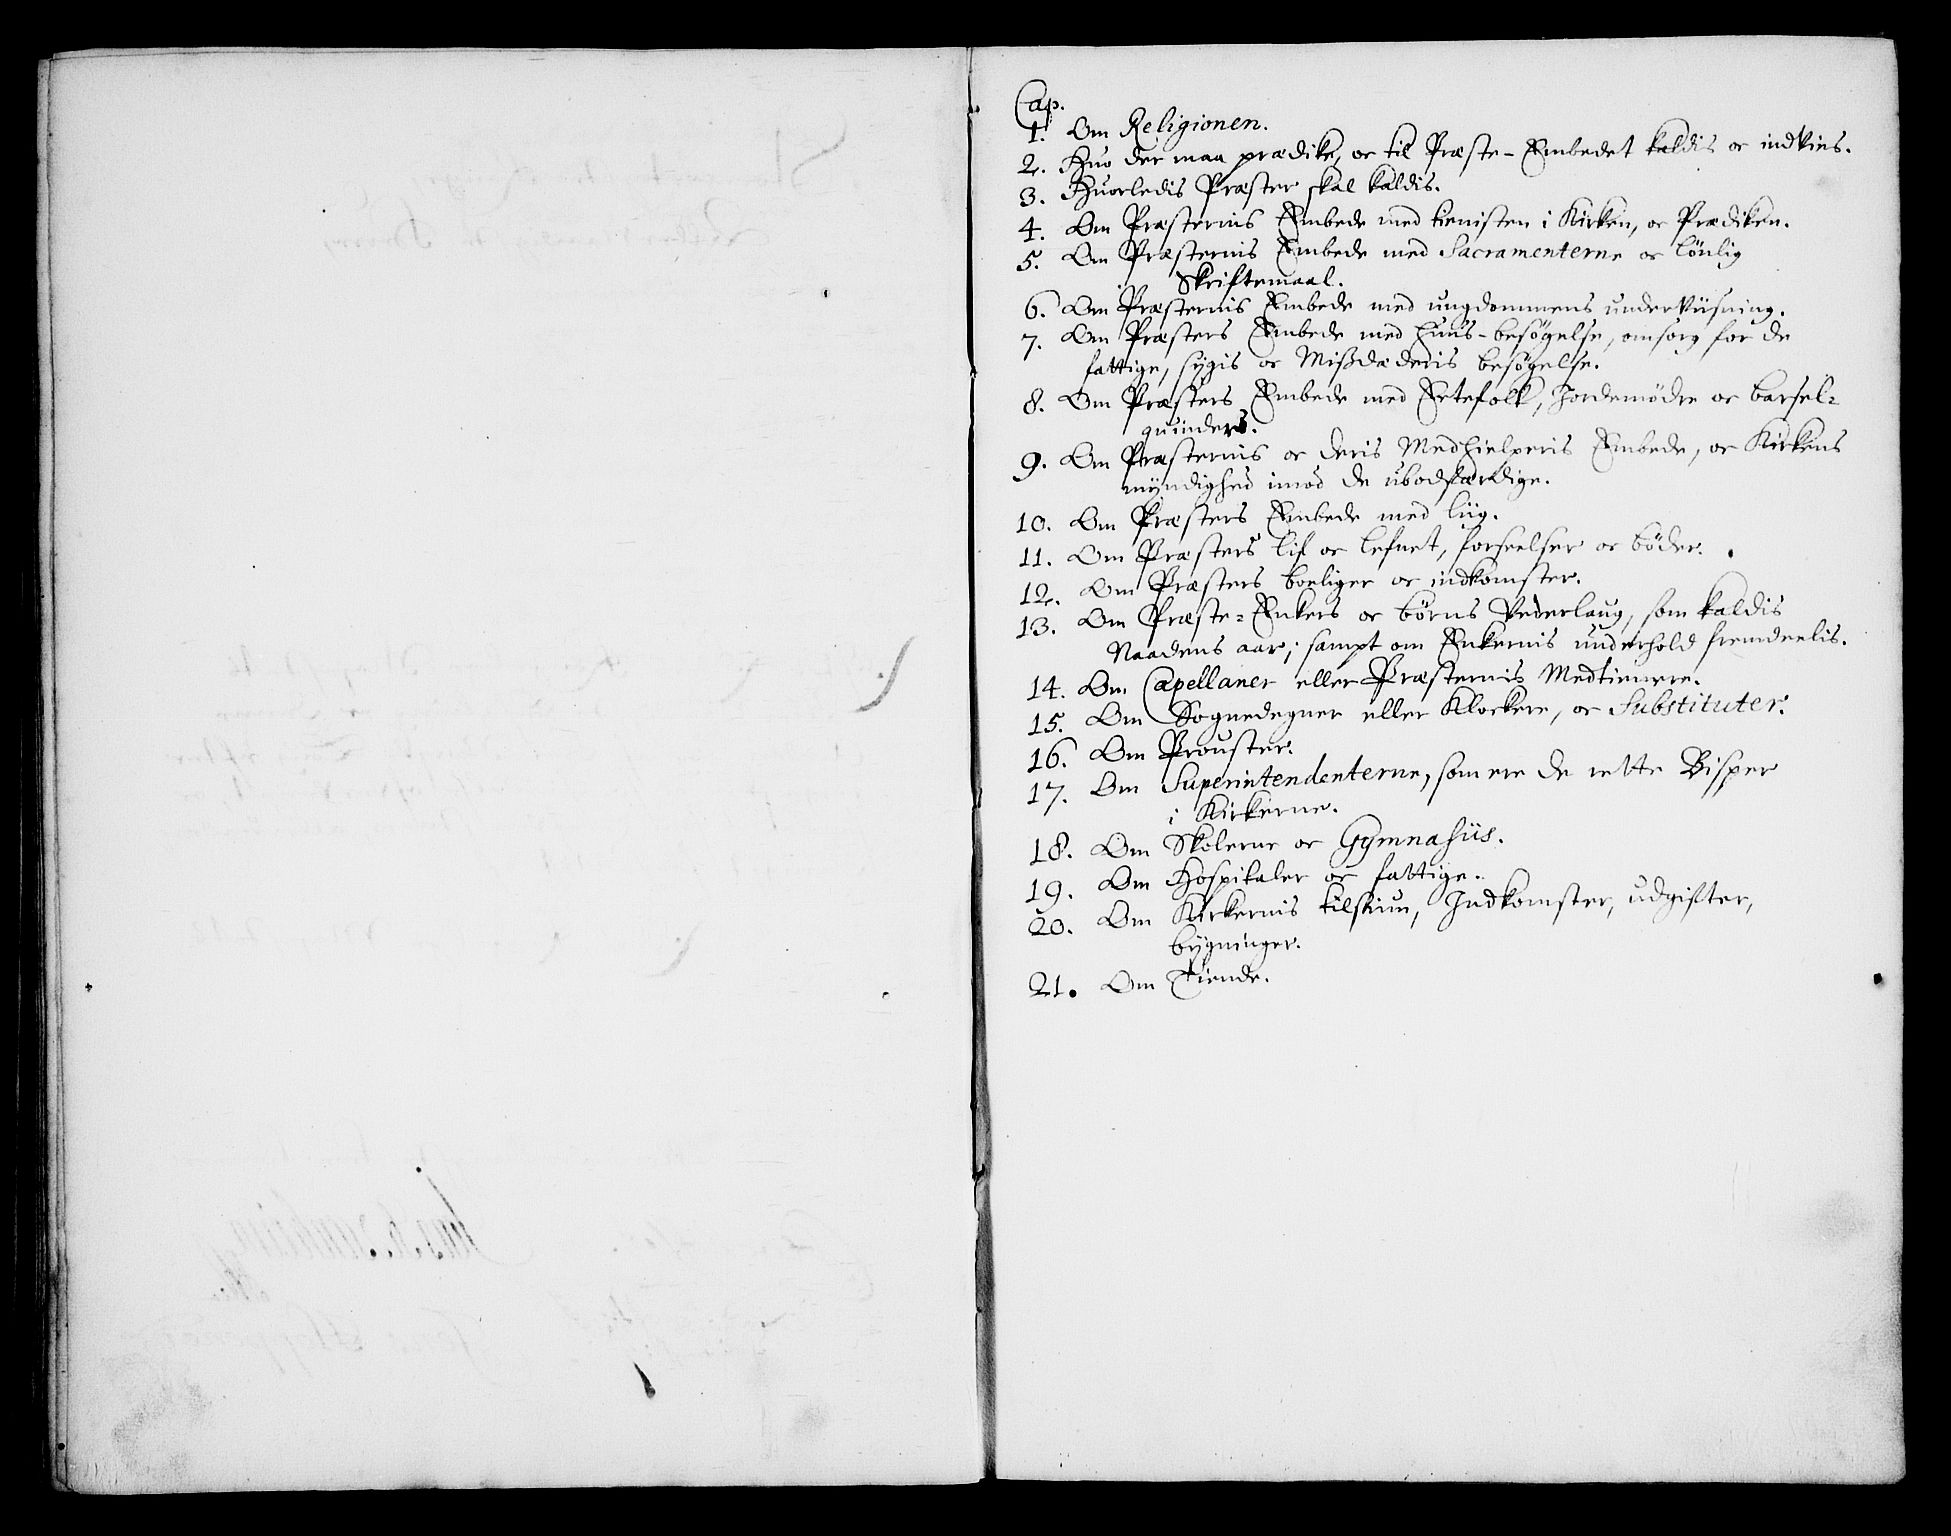 Cap.
1. Om Religionen.
2. Huo der maa prædike, oc til Præste-Embedet kaldis oc indvies.
3. Huorledis Præster skal kaldis.
4. Om Præsternis Embede med tienisten i Kirken, oc Prædiken.
5. Om Præsternis Embede med Sacramenterne oc lönlig
Skriftemaal.
6. Om Præsternis Embede med ungdommens underviisning.
7. Om Præsters Embede med huus-besögelse, omsorg for de
fattige, sygis oc Mißdæderis besögelse.
8. Om Præsters Embede med Ectefolk, Jordemödre oc barsel-
quinders.
9. Om Præsternis oc deris Medhielperis Embede, oc Kirkens
myndighed imod de ubodfærdige.
10. Om Præsters Embede med liig.
11. Om Præsters lif oc lefnet, forseelser oc böder.
12. Om Præsters boeliger oc indkomster.
13. Om Præste-Enkers oc börns Vederlaug, som kaldis
Naadens aar; sampt om Enkernis underhold fremdeelis.
14. Om Capellaner eller Præsternis Medtienere.
15. Om Sognedegner eller Klockere, oc Substituter.
16. Om Prouster.
17. Om Superintendenterne, som ere de rette Bisper
i Kirkerne.
18. Om Skolerne oc Gymnasiis.
19. Om Hospitaler oc fattige.
20. Om Kirkernis tilsiun, Indkomster, udgifter,
bygninger.
21. Om Tiende.